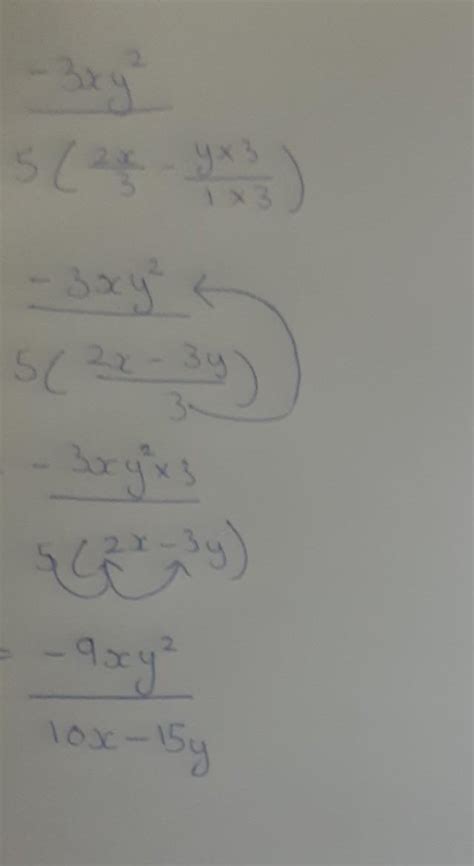 -3xy²
5(2x/3 - y×3/1×3)
-3xy²
5(2x-3y/3)
-3xy²×3
5(2x-3y)
= -9xy²
10x-15y